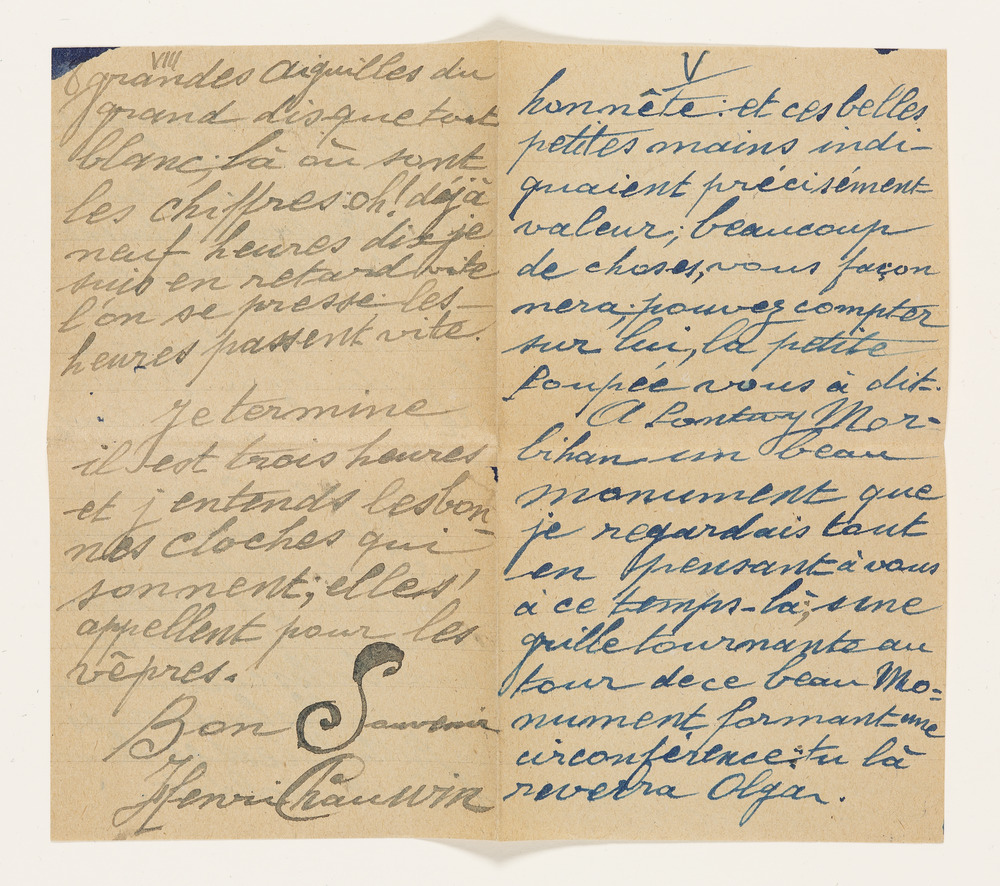 VIII
grandes aiguilles du
grand disque tout
blanc; là où sont
les chiffres: oh! déjà
neuf heures dis-je
suis en retard vite
l'on se presse les
heures passent vite.
Je termine
il est trois heures
et j entends les bon-
nes cloches qui
sonnent; elles'
appellent pour les
vêpres.
Bon Souvenir
Henri Chauvin
V
honnête: et ces belles
petites mains indi-
quaient précisément
valeur; beaucoup
de choses, vous façon
nera; pouvez compter
sur lui, la petite
Poupée vous à dit.
A Pontivy Mor-
bihan un beau
monument que
je regardais tout
en pensant à vous
à ce temps-là; une
grille tournante au
tour de ce beau Mo=
nument formant une
circonférence: tu là
reverra Olga.